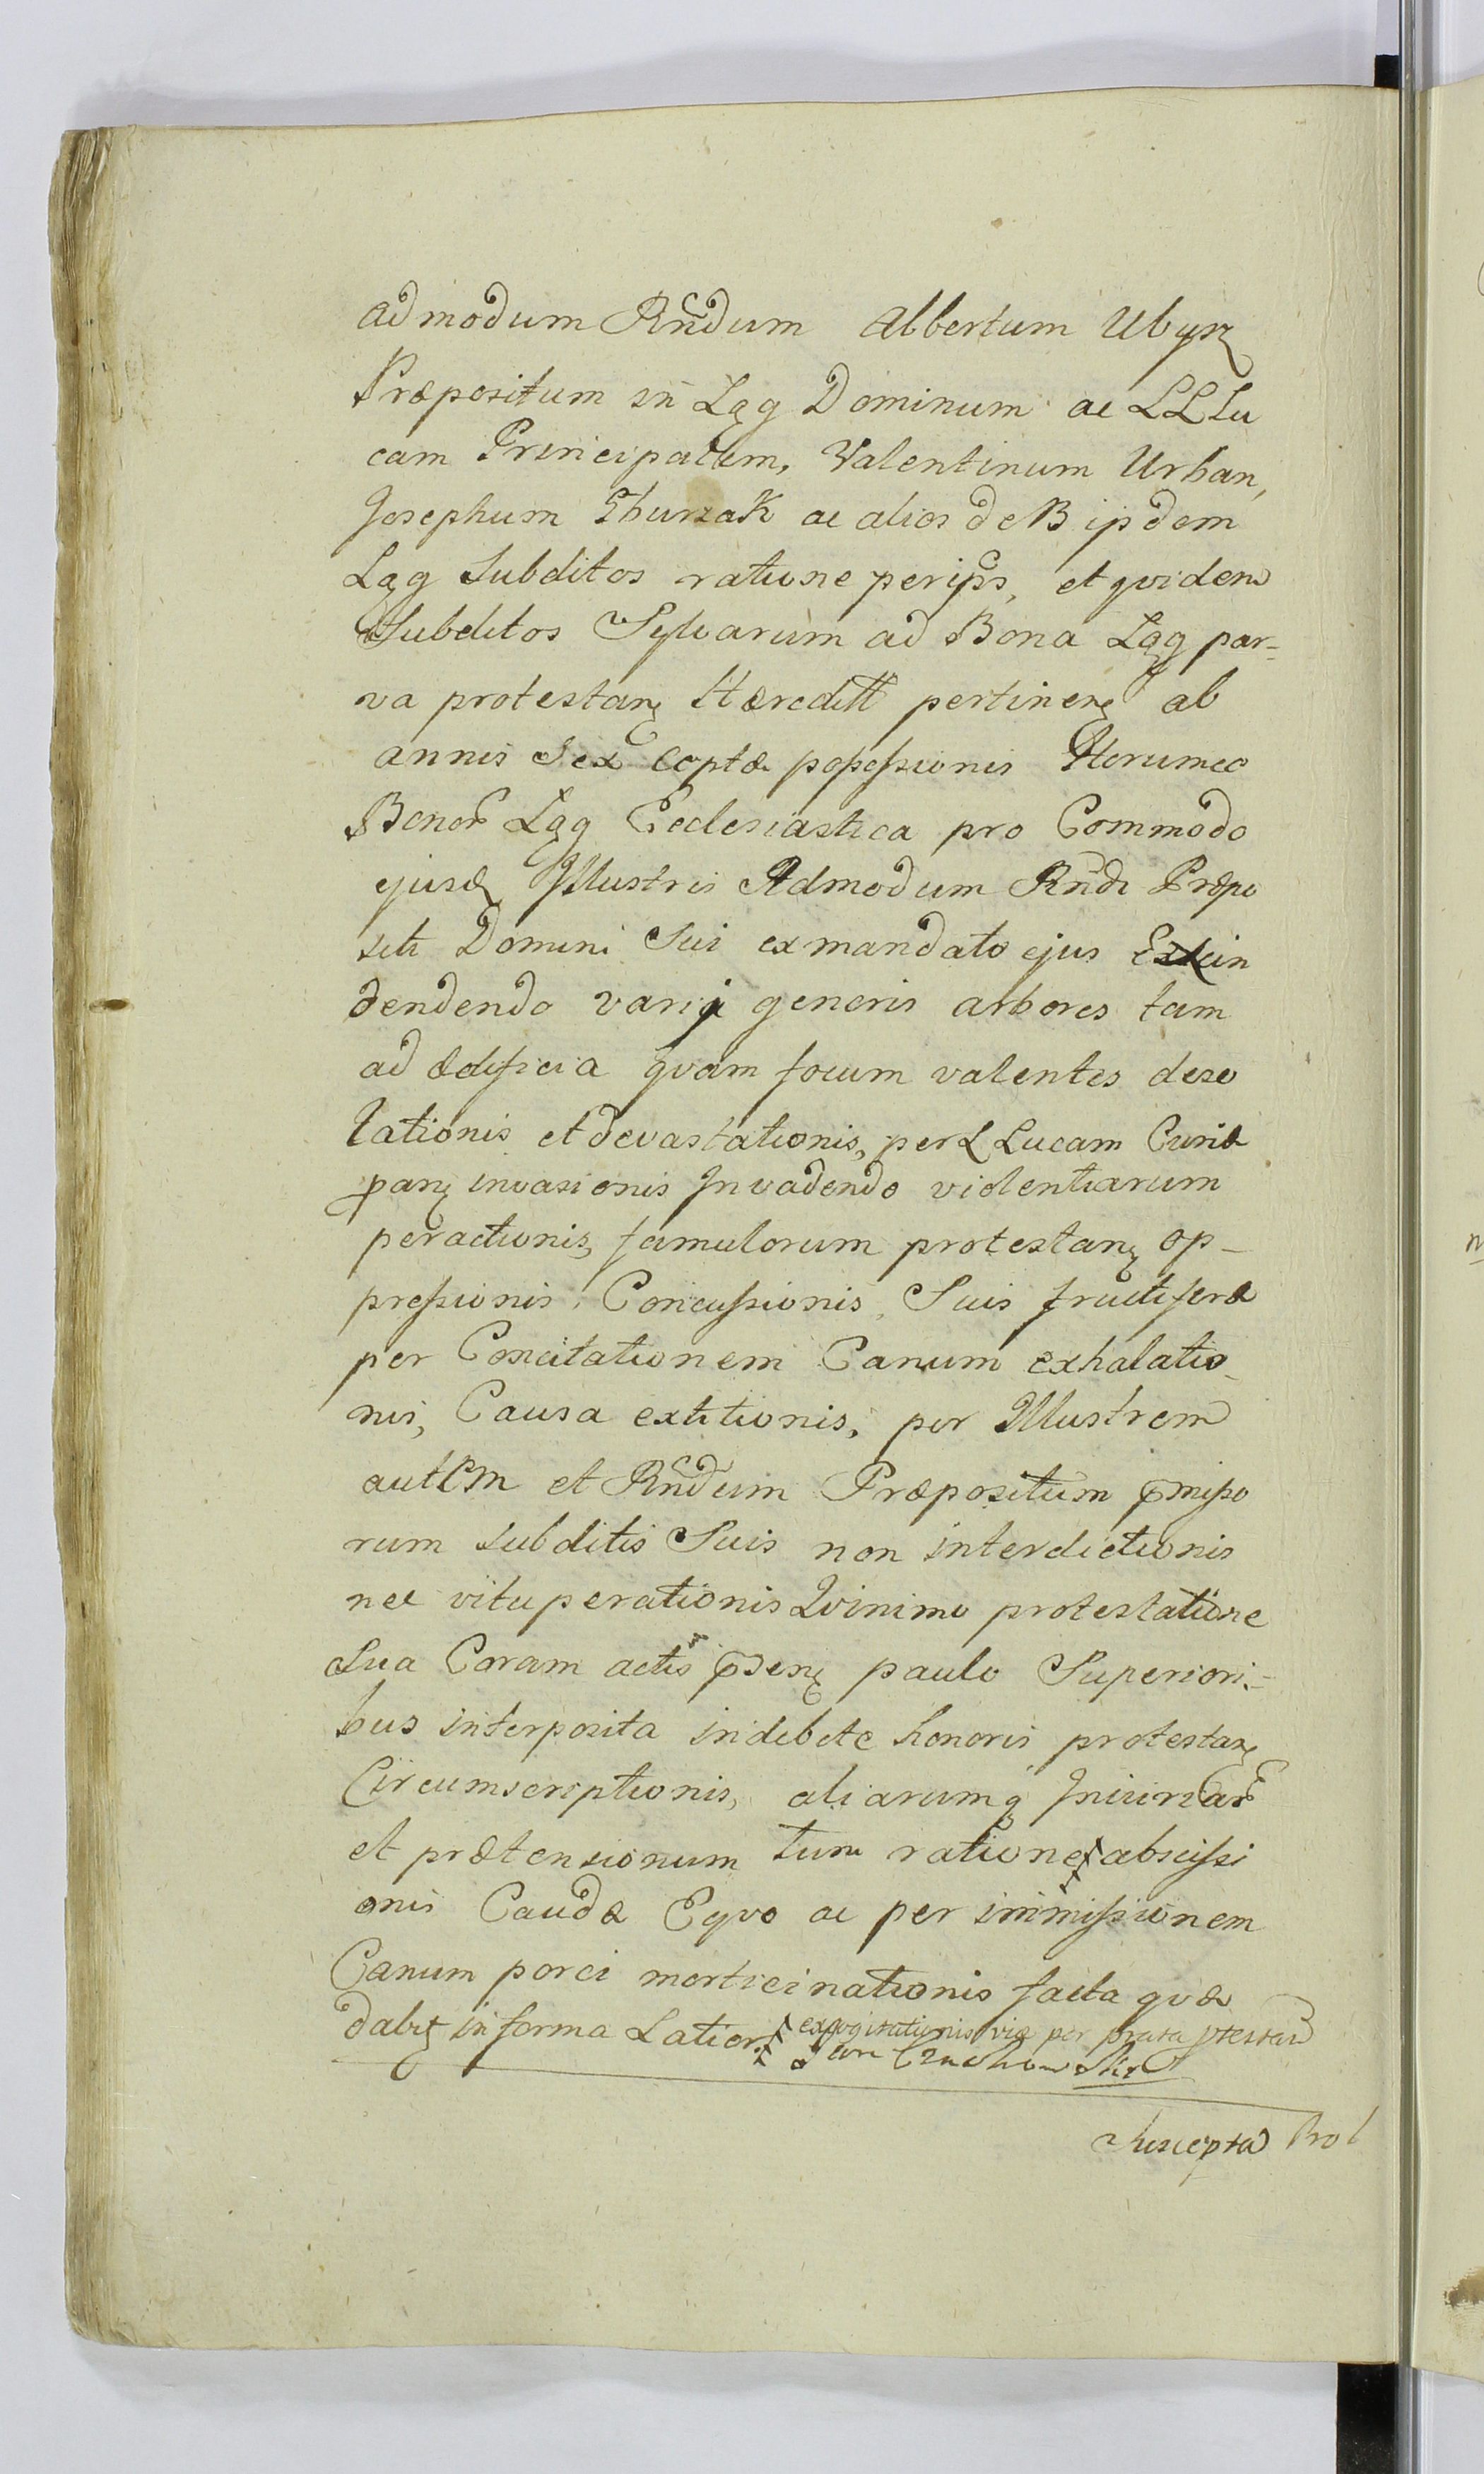 admodum Rndum Albertum Ubysz
Præpositum in Łąg Dominum ac LL Lu
cam Principalem, Valentinum Urban,
Josephum Churzak ac alios de B ipdem
Łąg Subditos ratione per ipos, et qvidem
Subditos Sylvarum ad Bona Łąg par-
va protestanę Hæreditt pertinenę ab
annis Sex coptæ poßeßionis Horumce
Bonor Łąg Ecclesiastica pro Commodo
ejusd Jllustris Admodum Rndi Præpo
siti Domini Sui ex mandato ejus Excin
dendendo varij generis arbores tam
ad ædificia qvam focum valentes deso
lationis et devastationis, per L Lucam Curiæ
panę invasionis Jnvadendo violentiarum
peractionis, famulorum protestanę op-
preßionis, Concußionis, Suis fructiferæ
per Concitationem Canum exhalatio_
nis, Causa extitionis, per Jllustrem
autem et Rndum Præpositum pmißo
rum subditis Suis non interdictionis
nec vituperationis Qvinimo protestatione
Sua Coram actis psenę paulo Superiori-
bus interposita indebite honoris protestanę
Circumscriptionis, aliarumq Jniuriar
et prætensionum tum ratione abscißi
onis Caudæ Eqvo ac per immißionem
Canum porci morticinationis facta qvæ
dabę in forma Latior excogitationis viæ per prata ptestan
Suscepta